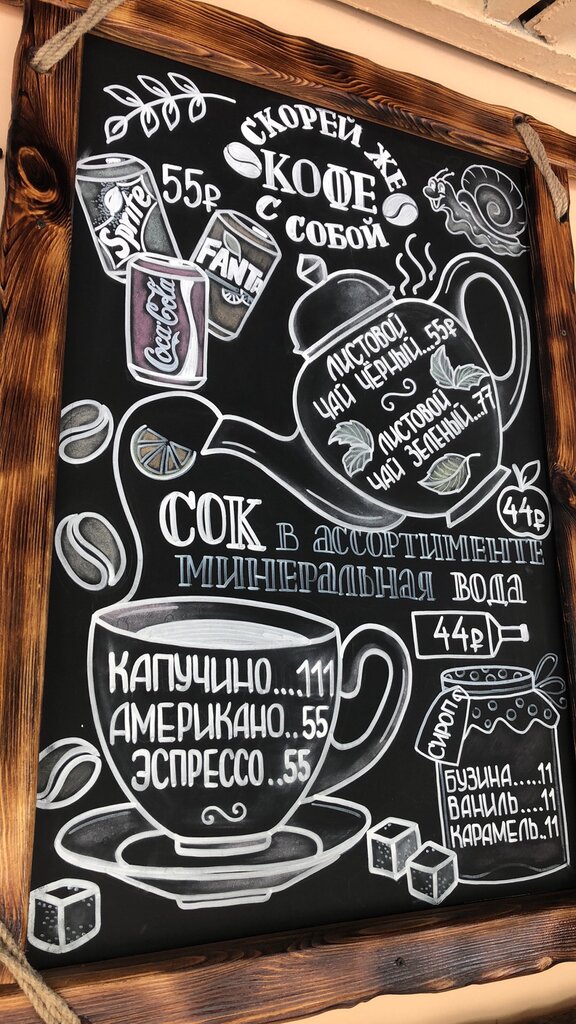 СКОРЕЙ ЖЕ
КОФЕ
С СОБОЙ
Sprite
55₽
FANTA
Coca-Cola
ЛИСТОВОЙ
ЧАЙ ЧЁРНЫЙ...55₽
ЛИСТОВОЙ
ЧАЙ ЗЕЛЕНЫЙ...77
СОК В АССОРТИМЕНТЕ
44₽
МИНЕРАЛЬНАЯ ВОДА
44₽
КАПУЧИНО....111
АМЕРИКАНО..55
ЭСПРЕССО..55
СИРОП
БУЗИНА.....11
ВАНИЛЬ....11
КАРАМЕЛЬ..11